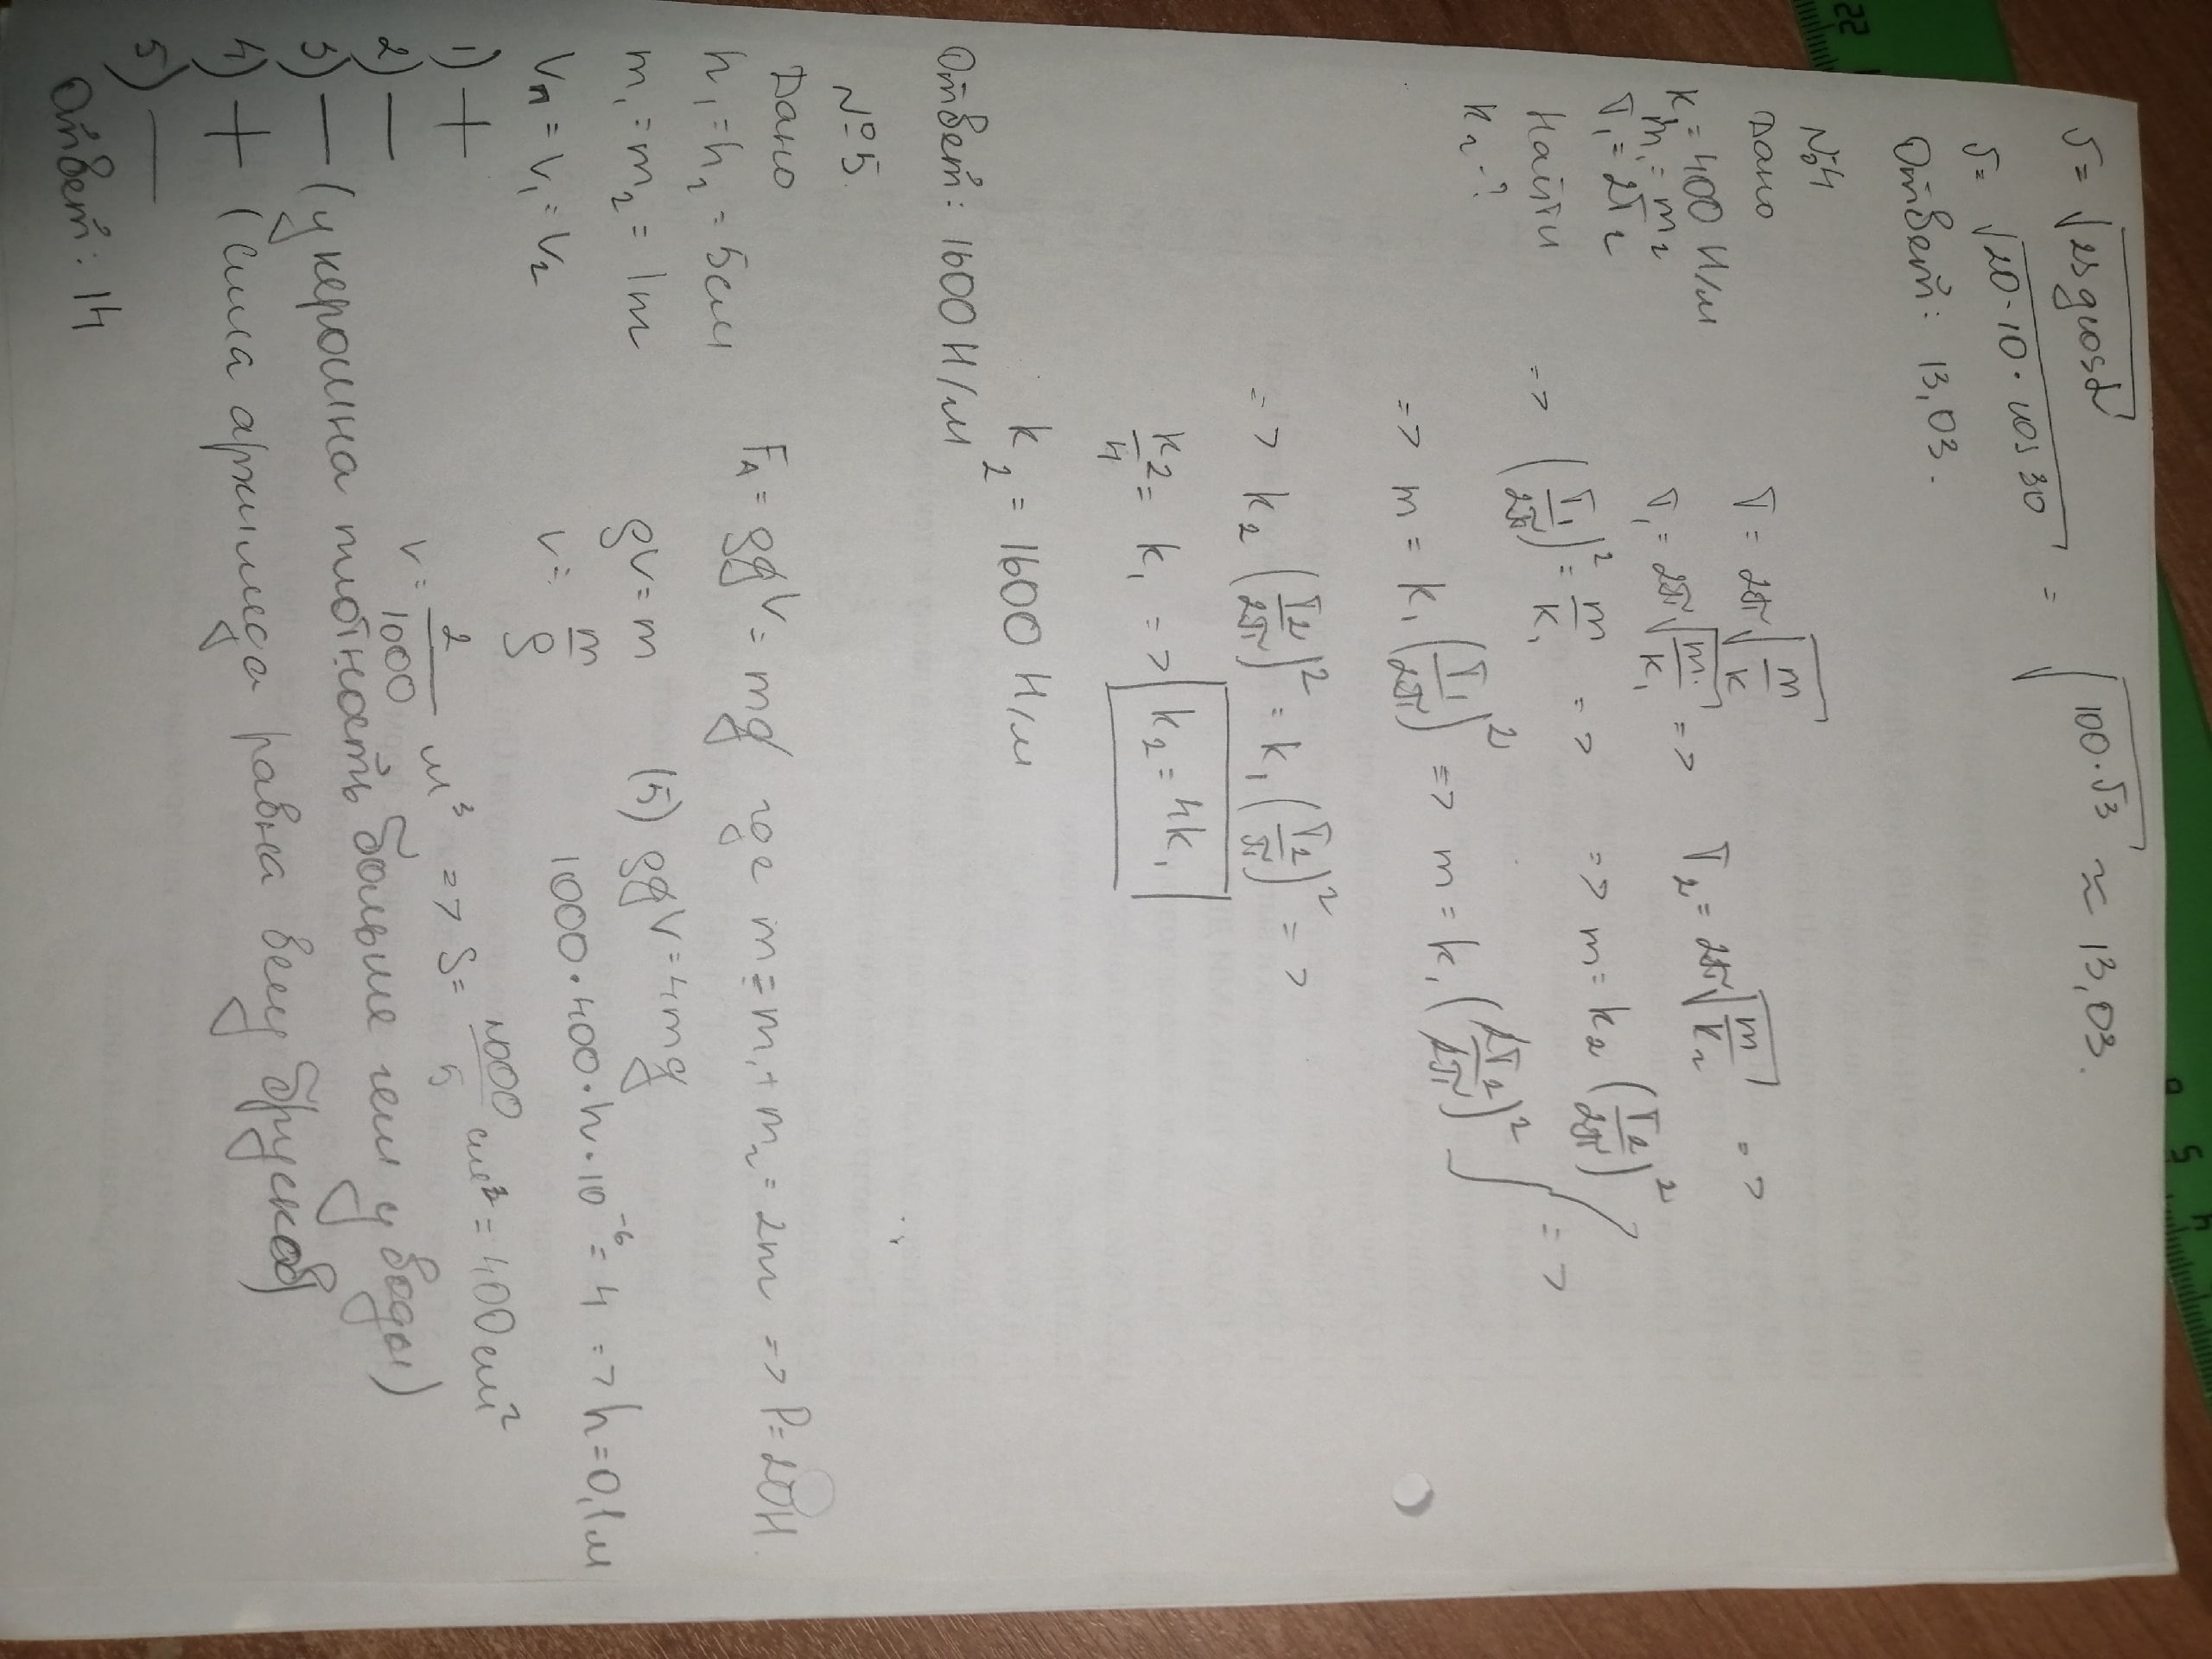 v = √(2sgcosα) = √(100·√3) ≈ 13,03.
v = √(20·10·cos 30)
Ответ: 13,03.
№4
Дано
k₁ = 400 Н/м
m₁ = m₂
T₁ = 2T₂
Найти
k₂ - ?
T = 2π√(m/k)
T₁ = 2π√(m/k₁) => T₂ = 2π√(m/k₂) =>
=> (T₁/2π)² = m/k₁ => => m = k₂(T₂/2π)²
=> m = k₁(T₁/2π)² => m = k₁(2T₂/2π)² =>
=> k₂(T₂/2π)² = k₁(T₂/π)² =>
k₂/4 = k₁ => k₂ = 4k₁
k₂ = 1600 Н/м
Ответ: 1600 Н/м
№5
Дано
h₁ = h₂ = 5см
m₁ = m₂ = 1m
Vп = V₁ = V₂
FА = ρgV = mg где m = m₁ + m₂ = 2m => P = 20Н.
ρV = m (5) ρgV = 4mg
V = m/ρ 1000·400·h·10⁻⁶ = 4 => h = 0,1м
V = 2/1000 м³ => S = 2000/5 см² = 400см²
1) +
2) —
3) — (у керошина плотность больше чем у воды)
4) + (сила архимеда равна весу брусков)
5) —
Ответ: 14